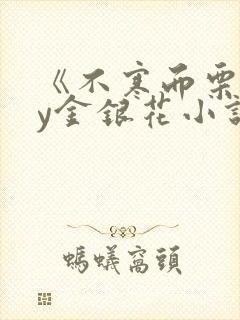 《不寒而栗
y金银花小說
螞蟻窩頭